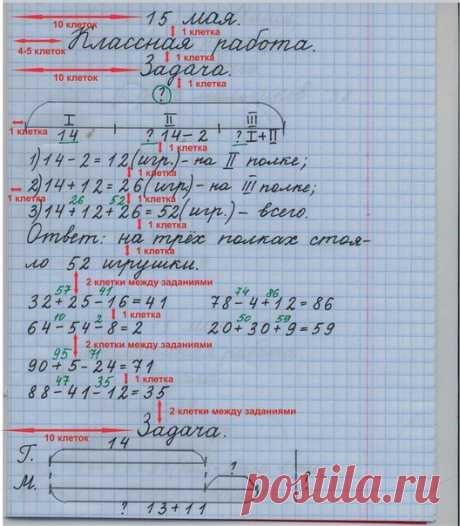 10 клеток 15 мая.
1 клетка
4-5 клеток Классная работа.
1 клетка
10 клеток Задача.
1 клетка
?
I II III
1 клетка 14 ? 14-2 ? I+II
1 клетка
1) 14-2=12 (игр.)- на II полке;
1 клетка
2) 14+12=26 (игр)- на III полке;
1 клетка 26 52 1 клетка
3) 14+12+26=52 (игр.)- всего.
1 клетка
Ответ: на трёх полках стоя-
1 клетка
ло 52 игрушки.
2 клетки между заданиями
57 41 74 86
32+25-16=41 78-4+12=86
1 клетка
10 2 50 59
64-54-8=2 20+30+9=59
2 клетки между заданиями
95 71
90+5-24=71
47 35 1 клетка
88-41-12=35
2 клетки между заданиями
10 клеток Задача.
14
Г.
М.
? 13+11
postila.ru